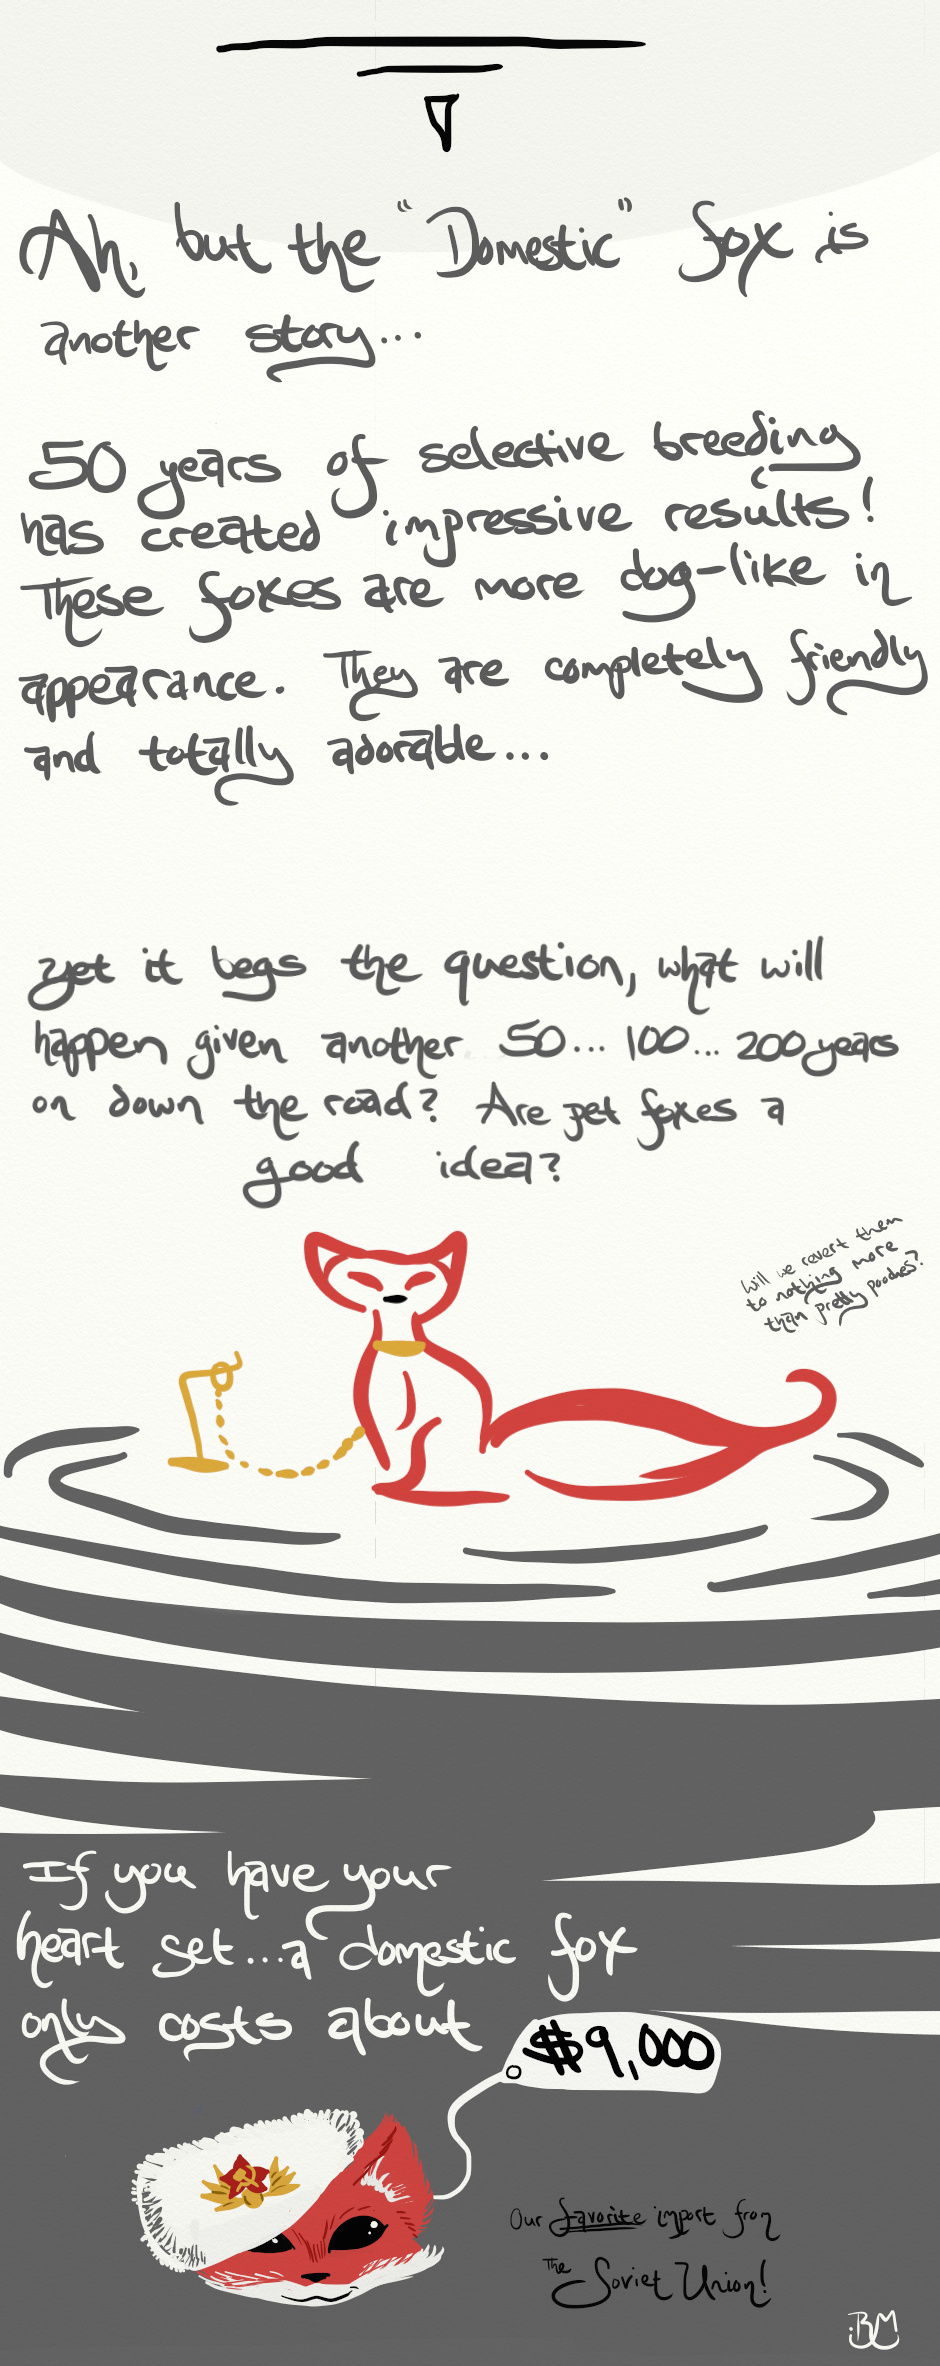 Ah, but the "Domestic" fox is
another story...
50 years of selective breeding
has created impressive results!
These foxes are more dog-like in
appearance. They are completely friendly
and totally adorable...
yet it begs the question, what will
happen given another 50... 100... 200 years
on down the road? Are pet foxes a
good idea?
Will we revert them
to nothing more
than pretty pooches?
If you have your
heart set...a domestic fox
only costs about
$9,000
Our favorite import from
The Soviet Union!
BM